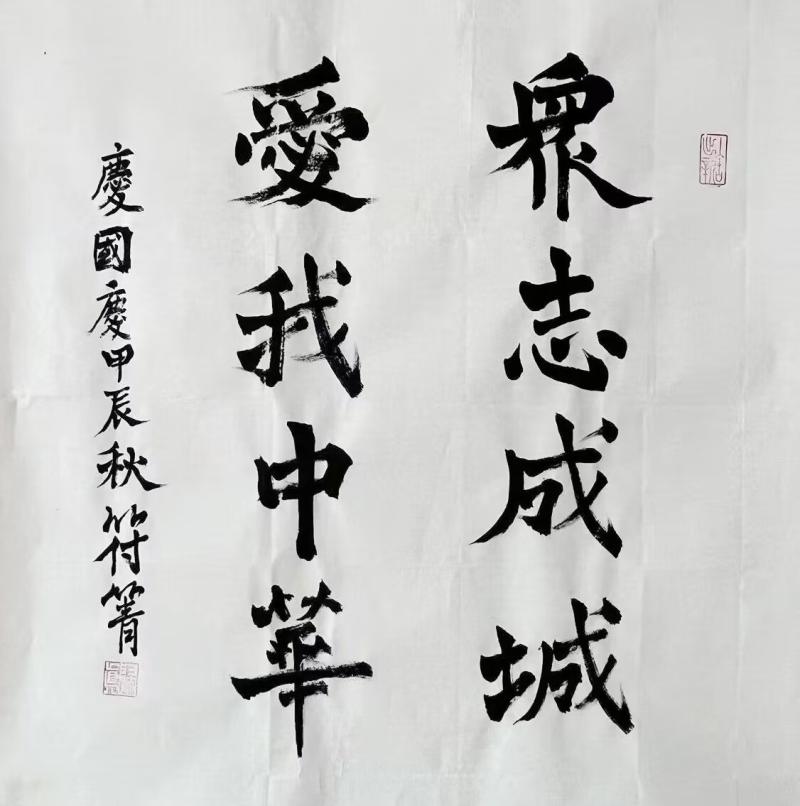 眾志成城
愛我中華
慶國慶甲辰秋符箐